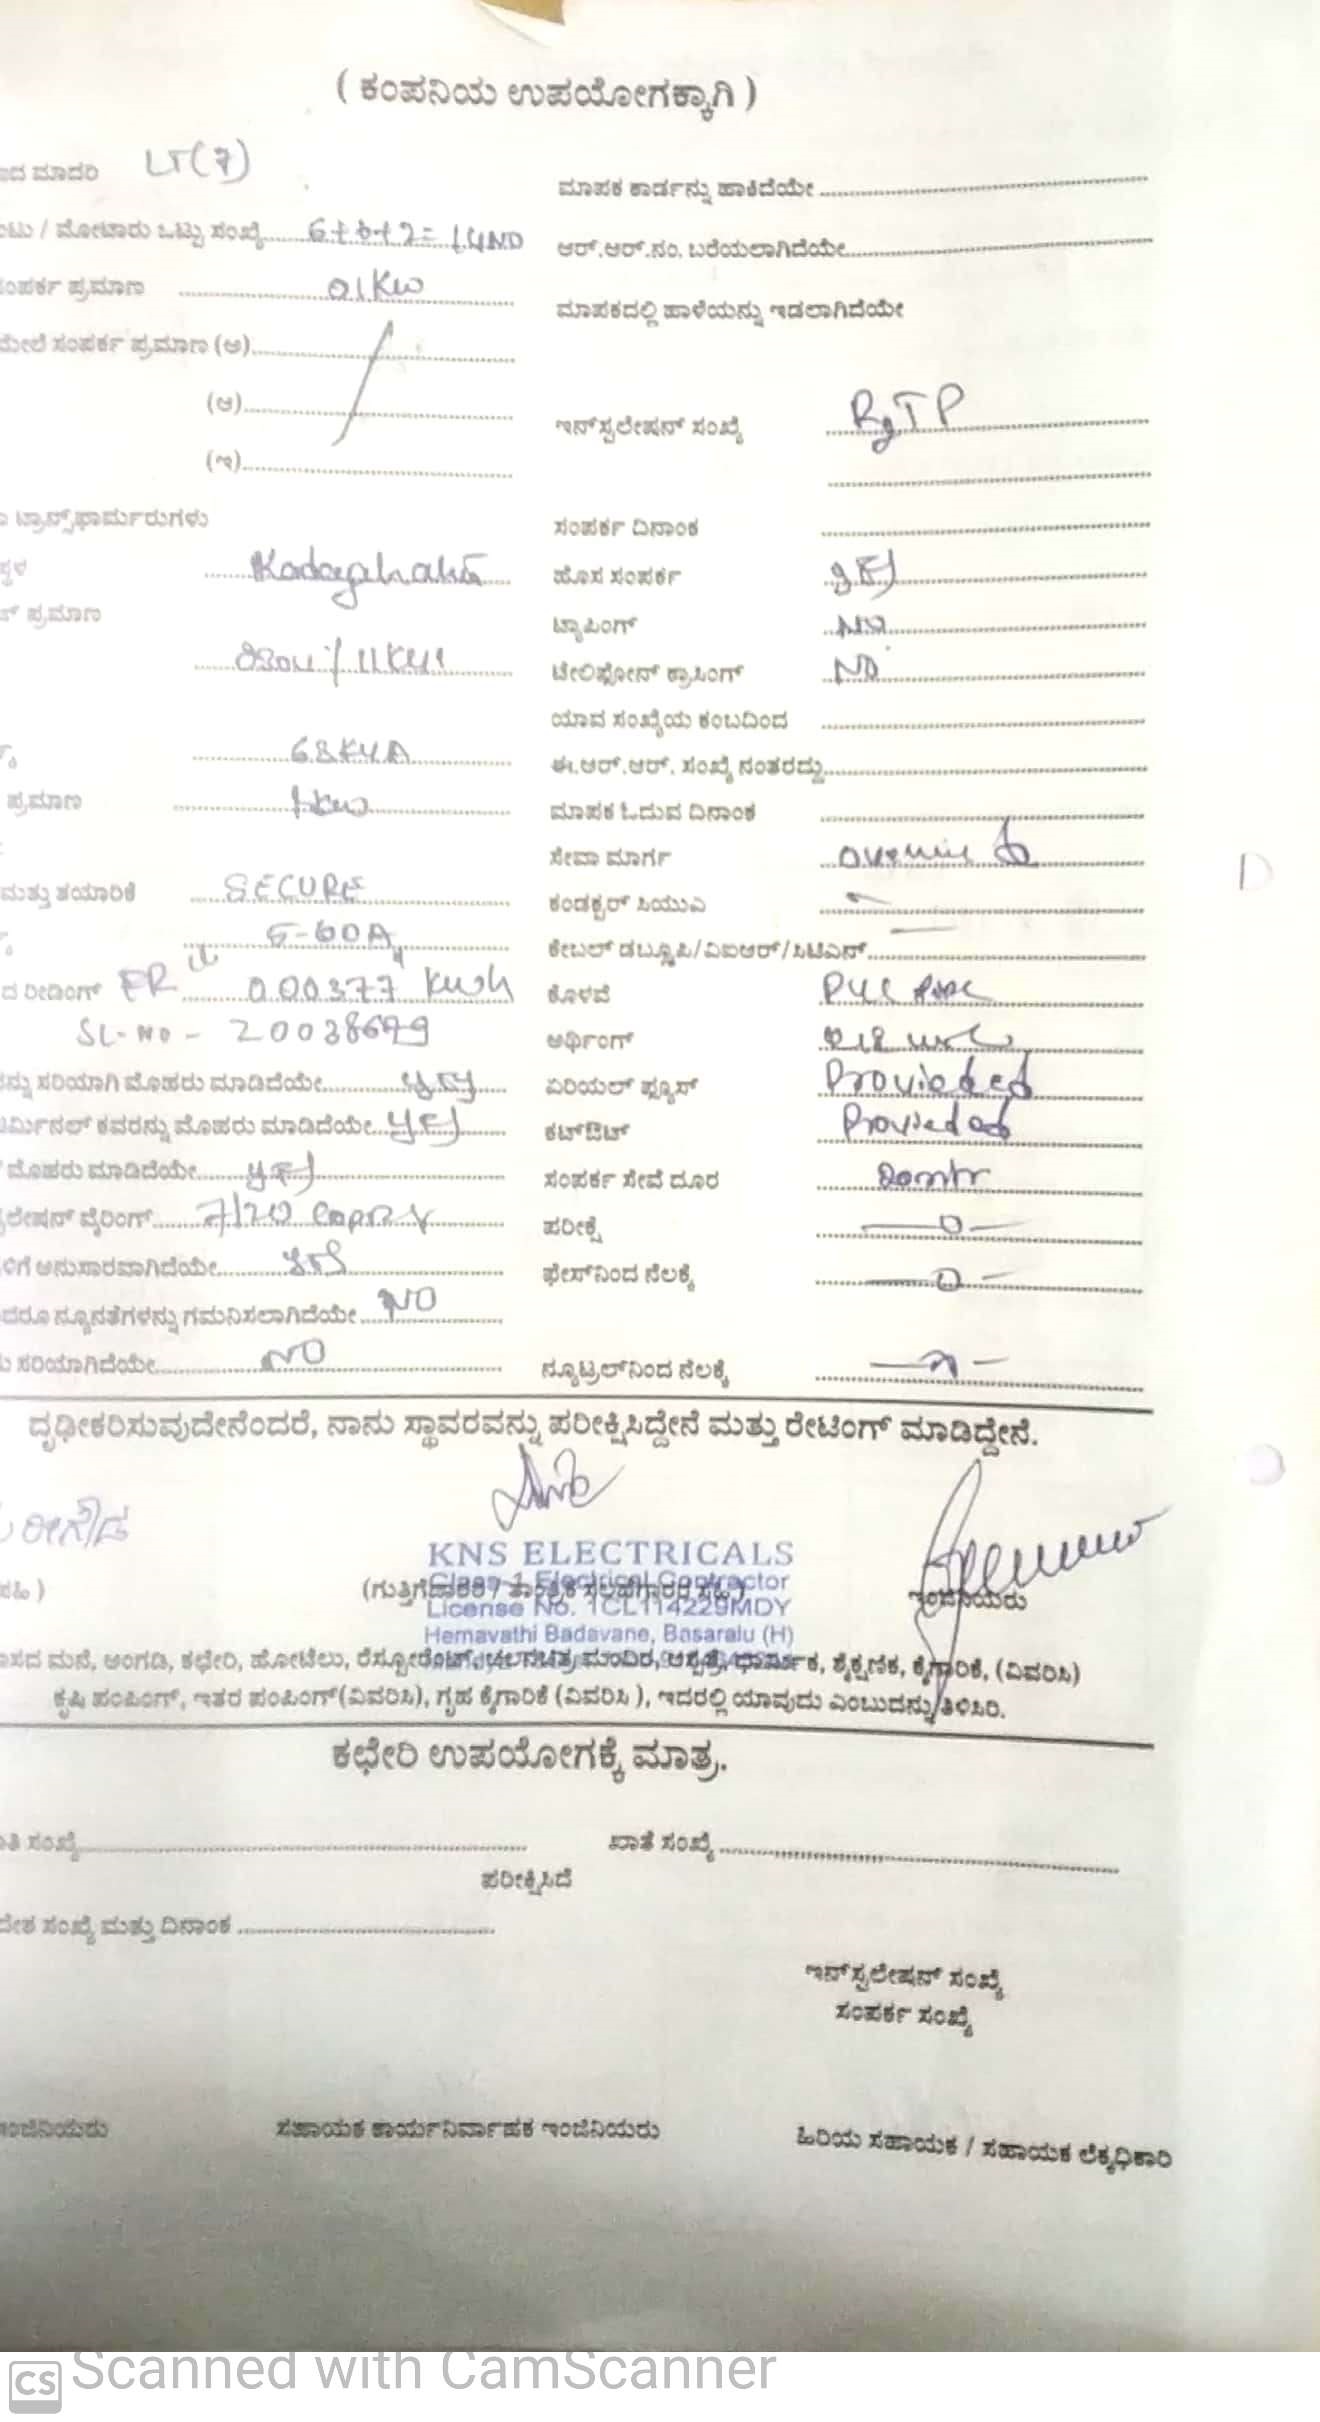 ( ಕಂಪನಿಯ ಉಪಯೋಗಕ್ಕಾಗಿ )
ಮಾದರಿ LT(7)
ಮಾಪಕ ಕಾರ್ಡನ್ನು ಹಾಕಿದೆಯೇ
/ ಮೋಟಾರು ಒಟ್ಟು ಸಂಖ್ಯೆ 6+6+2= 14NO
ಆರ್.ಆರ್.ನಂ. ಬರೆಯಲಾಗಿದೆಯೇ
ಸಂಪರ್ಕ ಪ್ರಮಾಣ 01KW
ಮಾಪಕದಲ್ಲಿ ಹಾಳೆಯನ್ನು ಇಡಲಾಗಿದೆಯೇ
ಮೇಲೆ ಸಂಪರ್ಕ ಪ್ರಮಾಣ (ಅ)
(ಆ)
ಇನ್‌ಸ್ಟಲೇಷನ್ ಸಂಖ್ಯೆ
(ಇ)
ಟ್ರಾನ್ಸ್‌ಫಾರ್ಮರುಗಳು
ಸಂಪರ್ಕ ದಿನಾಂಕ
ಹೊಸ ಸಂಪರ್ಕ
ಪ್ರಮಾಣ
ಟ್ಯಾಪಿಂಗ್ NO
ಟೇಲಿಫೋನ್ ಕ್ರಾಸಿಂಗ್ NO
ಯಾವ ಸಂಖ್ಯೆಯ ಕಂಬದಿಂದ
ಈ.ಆರ್.ಆರ್. ಸಂಖ್ಯೆ ನಂತರದ್ದು
ಪ್ರಮಾಣ 1KW
ಮಾಪಕ ಓದುವ ದಿನಾಂಕ
ಸೇವಾ ಮಾರ್ಗ
ಮತ್ತು ತಯಾರಿಕೆ SECURE
ಕಂಡಕ್ಟರ್ ಸಿಯುಎ
5-60A
ಕೇಬಲ್ ಡಬ್ಲ್ಯೂಪಿ/ವಿಐಆರ್/ಸಿಟಿಎಸ್
ರೀಡಿಂಗ್ FR 000377 KWh
ಕೊಳವೆ PVC Pipe
SL-NO - 20038699
ಅರ್ಥಿಂಗ್
ಸರಿಯಾಗಿ ಮೊಹರು ಮಾಡಿದೆಯೇ YES
ಏರಿಯಲ್ ಫ್ಯೂಸ್ Provieded
ಕವರನ್ನು ಮೊಹರು ಮಾಡಿದೆಯೇ YES
ಕಟ್ಔಟ್ Provieded
ಮೊಹರು ಮಾಡಿದೆಯೇ YES
ಸಂಪರ್ಕ ಸೇವೆ ದೂರ
ವೈರಿಂಗ್ 7/20
ಪರೀಕ್ಷೆ
ಅನುಸಾರವಾಗಿದೆಯೇ YES
ಫೇಸ್‌ನಿಂದ ನೆಲಕ್ಕೆ
ನ್ಯೂನತೆಗಳನ್ನು ಗಮನಿಸಲಾಗಿದೆಯೇ NO
ಸರಿಯಾಗಿದೆಯೇ NO
ನ್ಯೂಟ್ರಲ್‌ನಿಂದ ನೆಲಕ್ಕೆ
ದೃಢೀಕರಿಸುವುದೇನೆಂದರೆ, ನಾನು ಸ್ಥಾವರವನ್ನು ಪರೀಕ್ಷಿಸಿದ್ದೇನೆ ಮತ್ತು ರೇಟಿಂಗ್ ಮಾಡಿದ್ದೇನೆ.
KNS ELECTRICALS
Class-1 Electrical Contractor
(ಗುತ್ತಿಗೆದಾರರ / ತಾಂತ್ರಿಕ ಸಲಹೆಗಾರರ ಸಹಿ)
ಇಂಜಿನಿಯರು
License No. 1CL114229MDY
Hemavathi Badavane, Basaralu (H)
ಮನೆ, ಅಂಗಡಿ, ಕಛೇರಿ, ಹೋಟೆಲು, ರೆಸ್ಟೋರೆಂಟ್, ಚಲನಚಿತ್ರ ಮಂದಿರ, ಆಸ್ಪತ್ರೆ, ಧಾರ್ಮಿಕ, ಶೈಕ್ಷಣಿಕ, ಕೈಗಾರಿಕೆ, (ವಿವರಿಸಿ)
ಕೃಷಿ ಪಂಪಿಂಗ್, ಇತರ ಪಂಪಿಂಗ್(ವಿವರಿಸಿ), ಗೃಹ ಕೈಗಾರಿಕೆ (ವಿವರಿಸಿ ), ಇದರಲ್ಲಿ ಯಾವುದು ಎಂಬುದನ್ನು ತಿಳಿಸಿರಿ.
ಕಛೇರಿ ಉಪಯೋಗಕ್ಕೆ ಮಾತ್ರ.
ಸಂಖ್ಯೆ
ಖಾತೆ ಸಂಖ್ಯೆ
ಪರೀಕ್ಷಿಸಿದೆ
ಸಂಖ್ಯೆ ಮತ್ತು ದಿನಾಂಕ
ಇನ್‌ಸ್ಟಲೇಷನ್ ಸಂಖ್ಯೆ
ಸಂಪರ್ಕ ಸಂಖ್ಯೆ
ಇಂಜಿನಿಯರು
ಸಹಾಯಕ ಕಾರ್ಯನಿರ್ವಾಹಕ ಇಂಜಿನಿಯರು
ಹಿರಿಯ ಸಹಾಯಕ / ಸಹಾಯಕ ಲೆಕ್ಕಧಿಕಾರಿ
CS Scanned with CamScanner